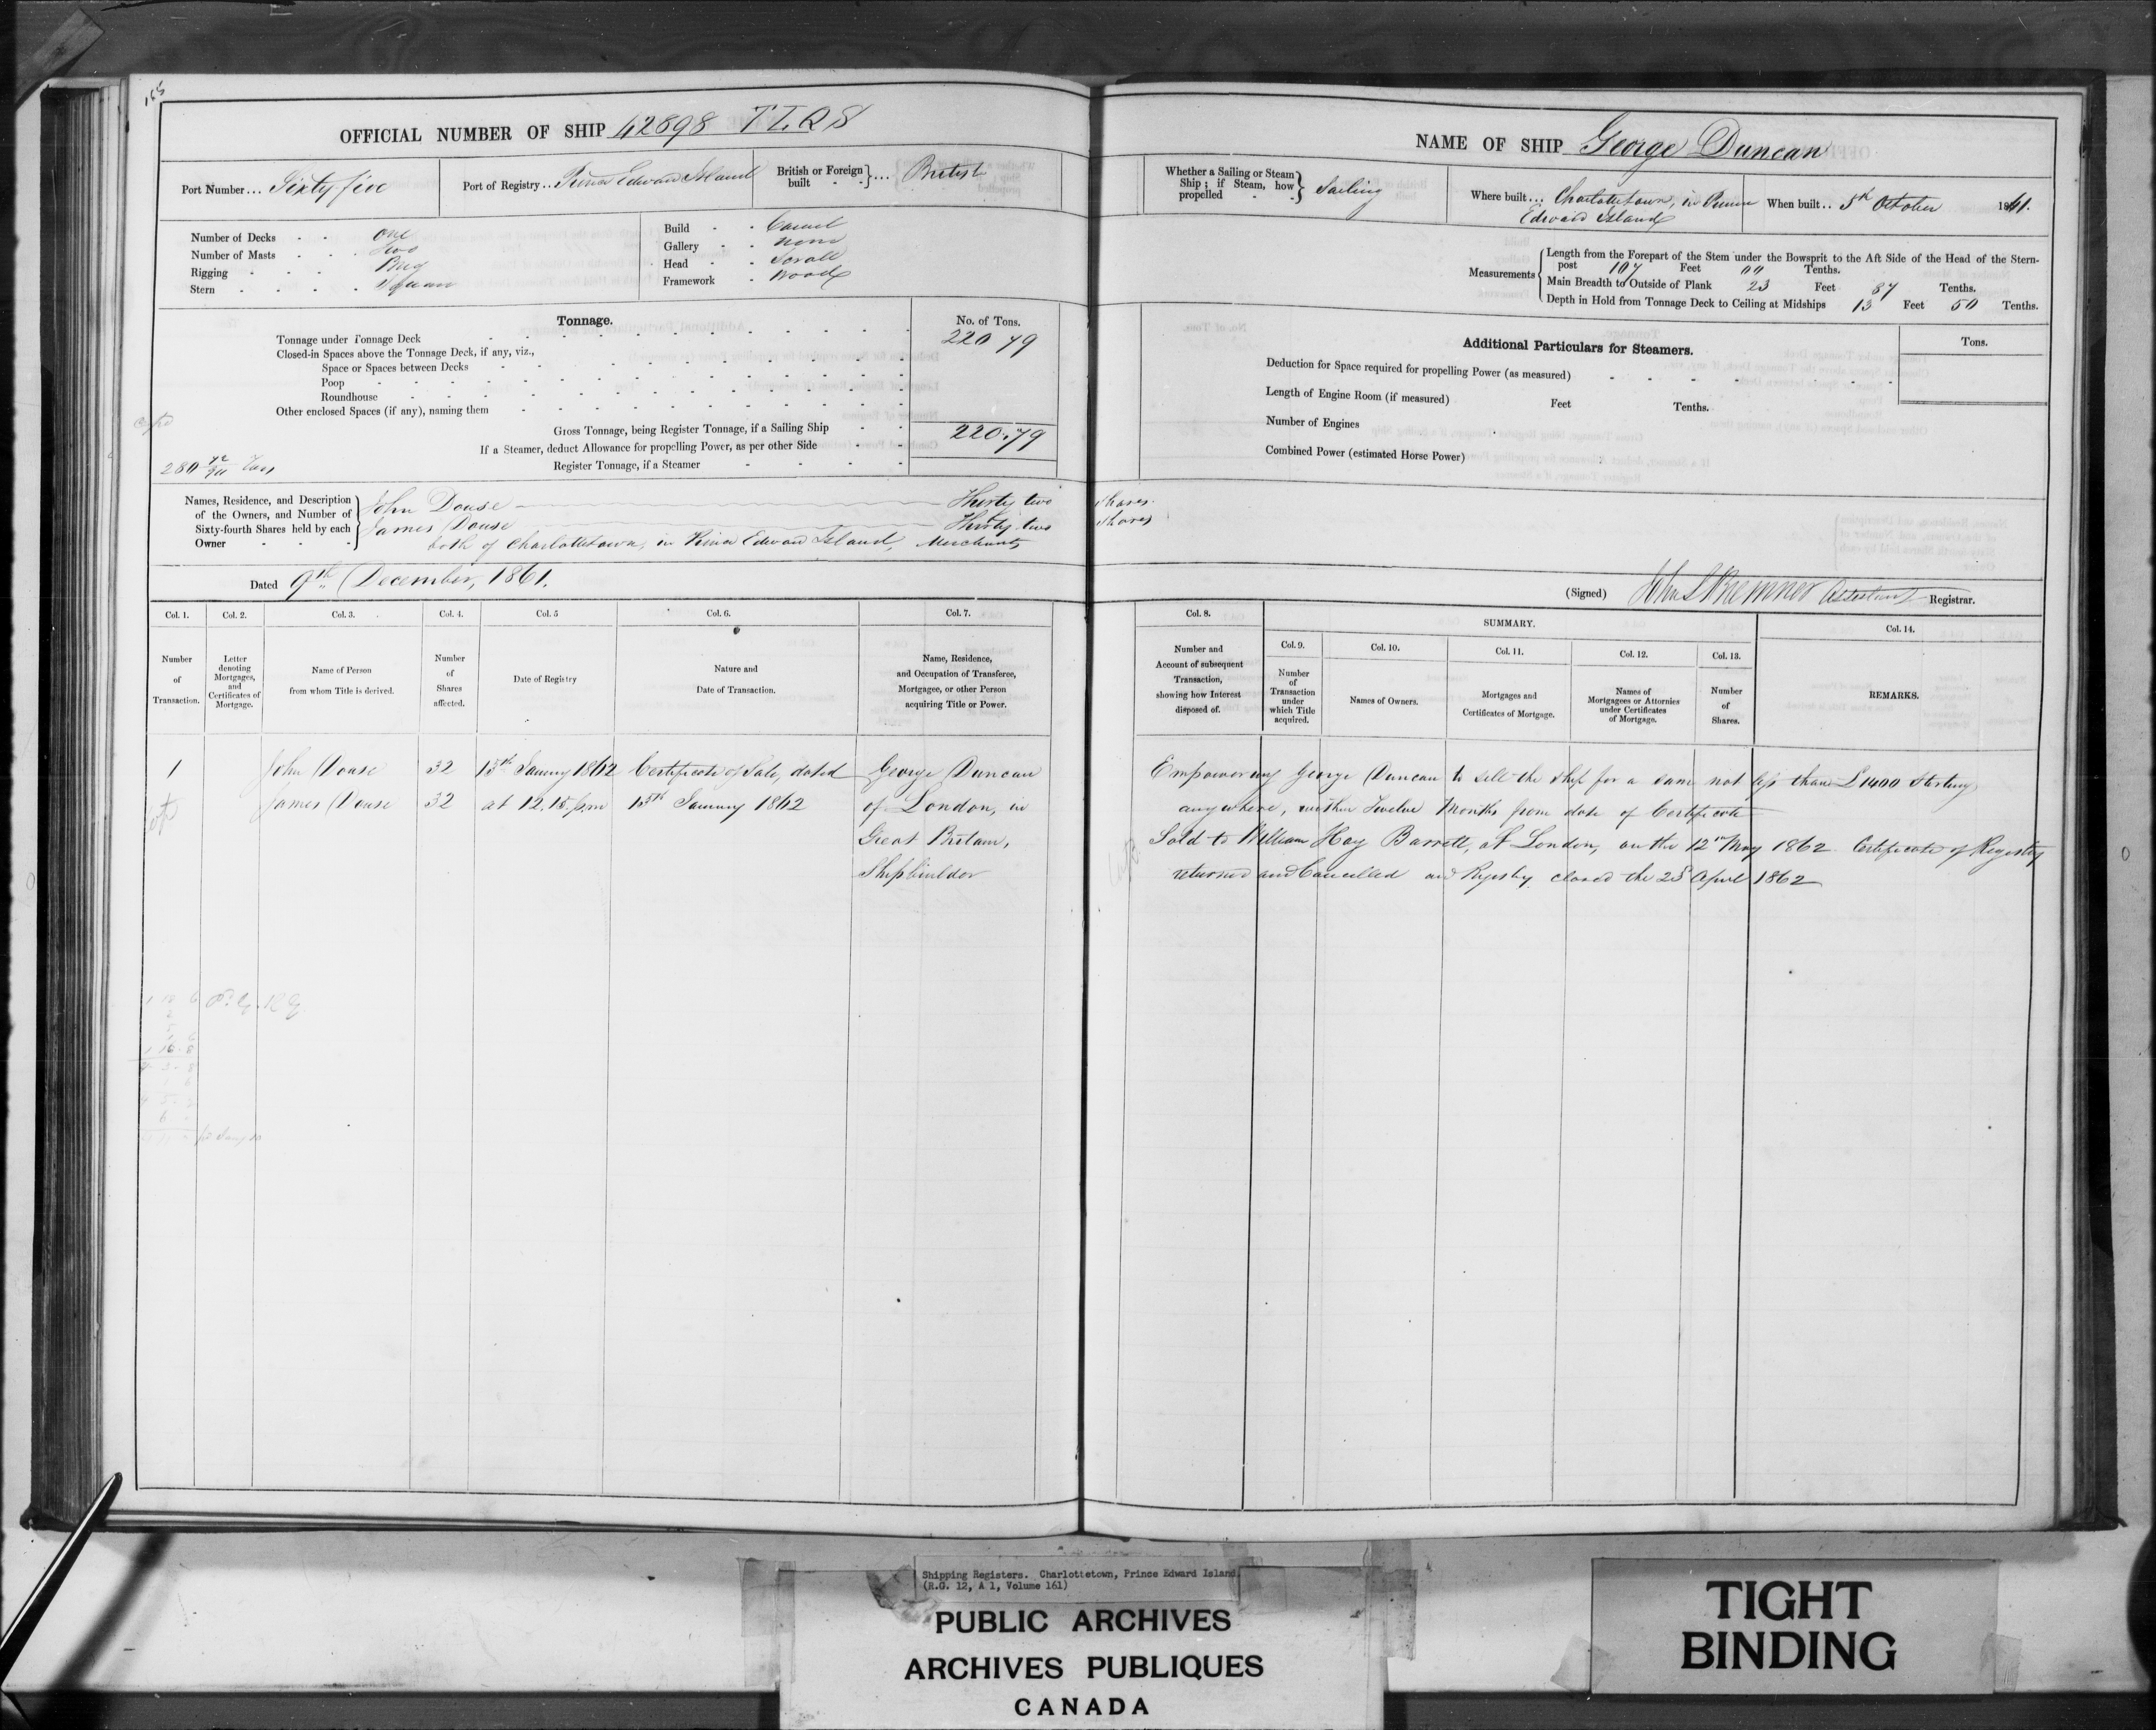 155
OFFICIAL NUMBER OF SHIP 42898 T L Q S
Port Number... Sixty five
Port of Registry.. Prince Edward Island
British or Foreign built } ... British
Number of Decks - - One
Number of Masts - - Two
Rigging - - - Brig
Stern - - - - Square
Build - - Carvel
Gallery - - None
Head - - Scroll
Framework - Wood
Tonnage.
No. of Tons.
Tonnage under Tonnage Deck 220 79
Closed-in Spaces above the Tonnage Deck, if any, viz.,
Space or Spaces between Decks
Poop
Roundhouse
Other enclosed Spaces (if any), naming them
Gross Tonnage, being Register Tonnage, if a Sailing Ship 220.79
If a Steamer, deduct Allowance for propelling Power, as per other Side
Register Tonnage, if a Steamer
Names, Residence, and Description of the Owners, and Number of Sixty-fourth Shares held by each Owner
John Douse Thirty two Shares
James Douse Thirty two Shares
both of Charlottetown, in Prince Edward Island, Merchants
Dated 9th December, 1861.
NAME OF SHIP George Duncan
Whether a Sailing or Steam Ship; if Steam, how propelled } Sailing
Where built... Charlottetown, in Prince
Edward Island
When built.. 5th October 1861.
Measurements
Length from the Forepart of the Stem under the Bowsprit to the Aft Side of the Head of the Stern-
post 107 Feet 00 Tenths.
Main Breadth to Outside of Plank 23 Feet 87 Tenths.
Depth in Hold from Tonnage Deck to Ceiling at Midships 13 Feet 50 Tenths.
Additional Particulars for Steamers.
Tons.
Deduction for Space required for propelling Power (as measured)
Length of Engine Room (if measured) Feet Tenths.
Number of Engines
Combined Power (estimated Horse Power)
(Signed) John S Bremner Assistant Registrar.
Col. 1. Col. 2. Col. 3. Col. 4. Col. 5 Col. 6. Col. 7.
Number of Transaction.
Letter denoting Mortgages, and Certificates of Mortgage.
Name of Person from whom Title is derived.
Number of Shares affected.
Date of Registry
Nature and Date of Transaction.
Name, Residence, and Occupation of Transferee, Mortgagee, or other Person acquiring Title or Power.
Col. 8.
Number and Account of subsequent Transaction, showing how Interest disposed of.
SUMMARY.
Col. 9.
Number of Transaction under which Title acquired.
Col. 10.
Names of Owners.
Col. 11.
Mortgages and Certificates of Mortgage.
Col. 12.
Names of Mortgagees or Attornies under Certificates of Mortgage.
Col. 13.
Number of Shares.
Col. 14.
REMARKS.
1 John Douse 32 15th January 1862 Certificate of Sale, dated George Duncan
James Douse 32 at 12.15 p.m 15th January 1862 of London, in
Great Britain,
Shipbuilder
Empowering George Duncan to sell the ship for a sum not less than £1400 Sterling
anywhere, within Twelve Months from date of Certificate
Sold to William Hay Barrett, of London, on the 12th May 1862. Certificate of Registry
returned and Cancelled and Registry closed the 23d April 1862
Shipping Registers. Charlottetown, Prince Edward Island.
(R.G. 12, A 1, Volume 161)
PUBLIC ARCHIVES
ARCHIVES PUBLIQUES
CANADA
TIGHT
BINDING